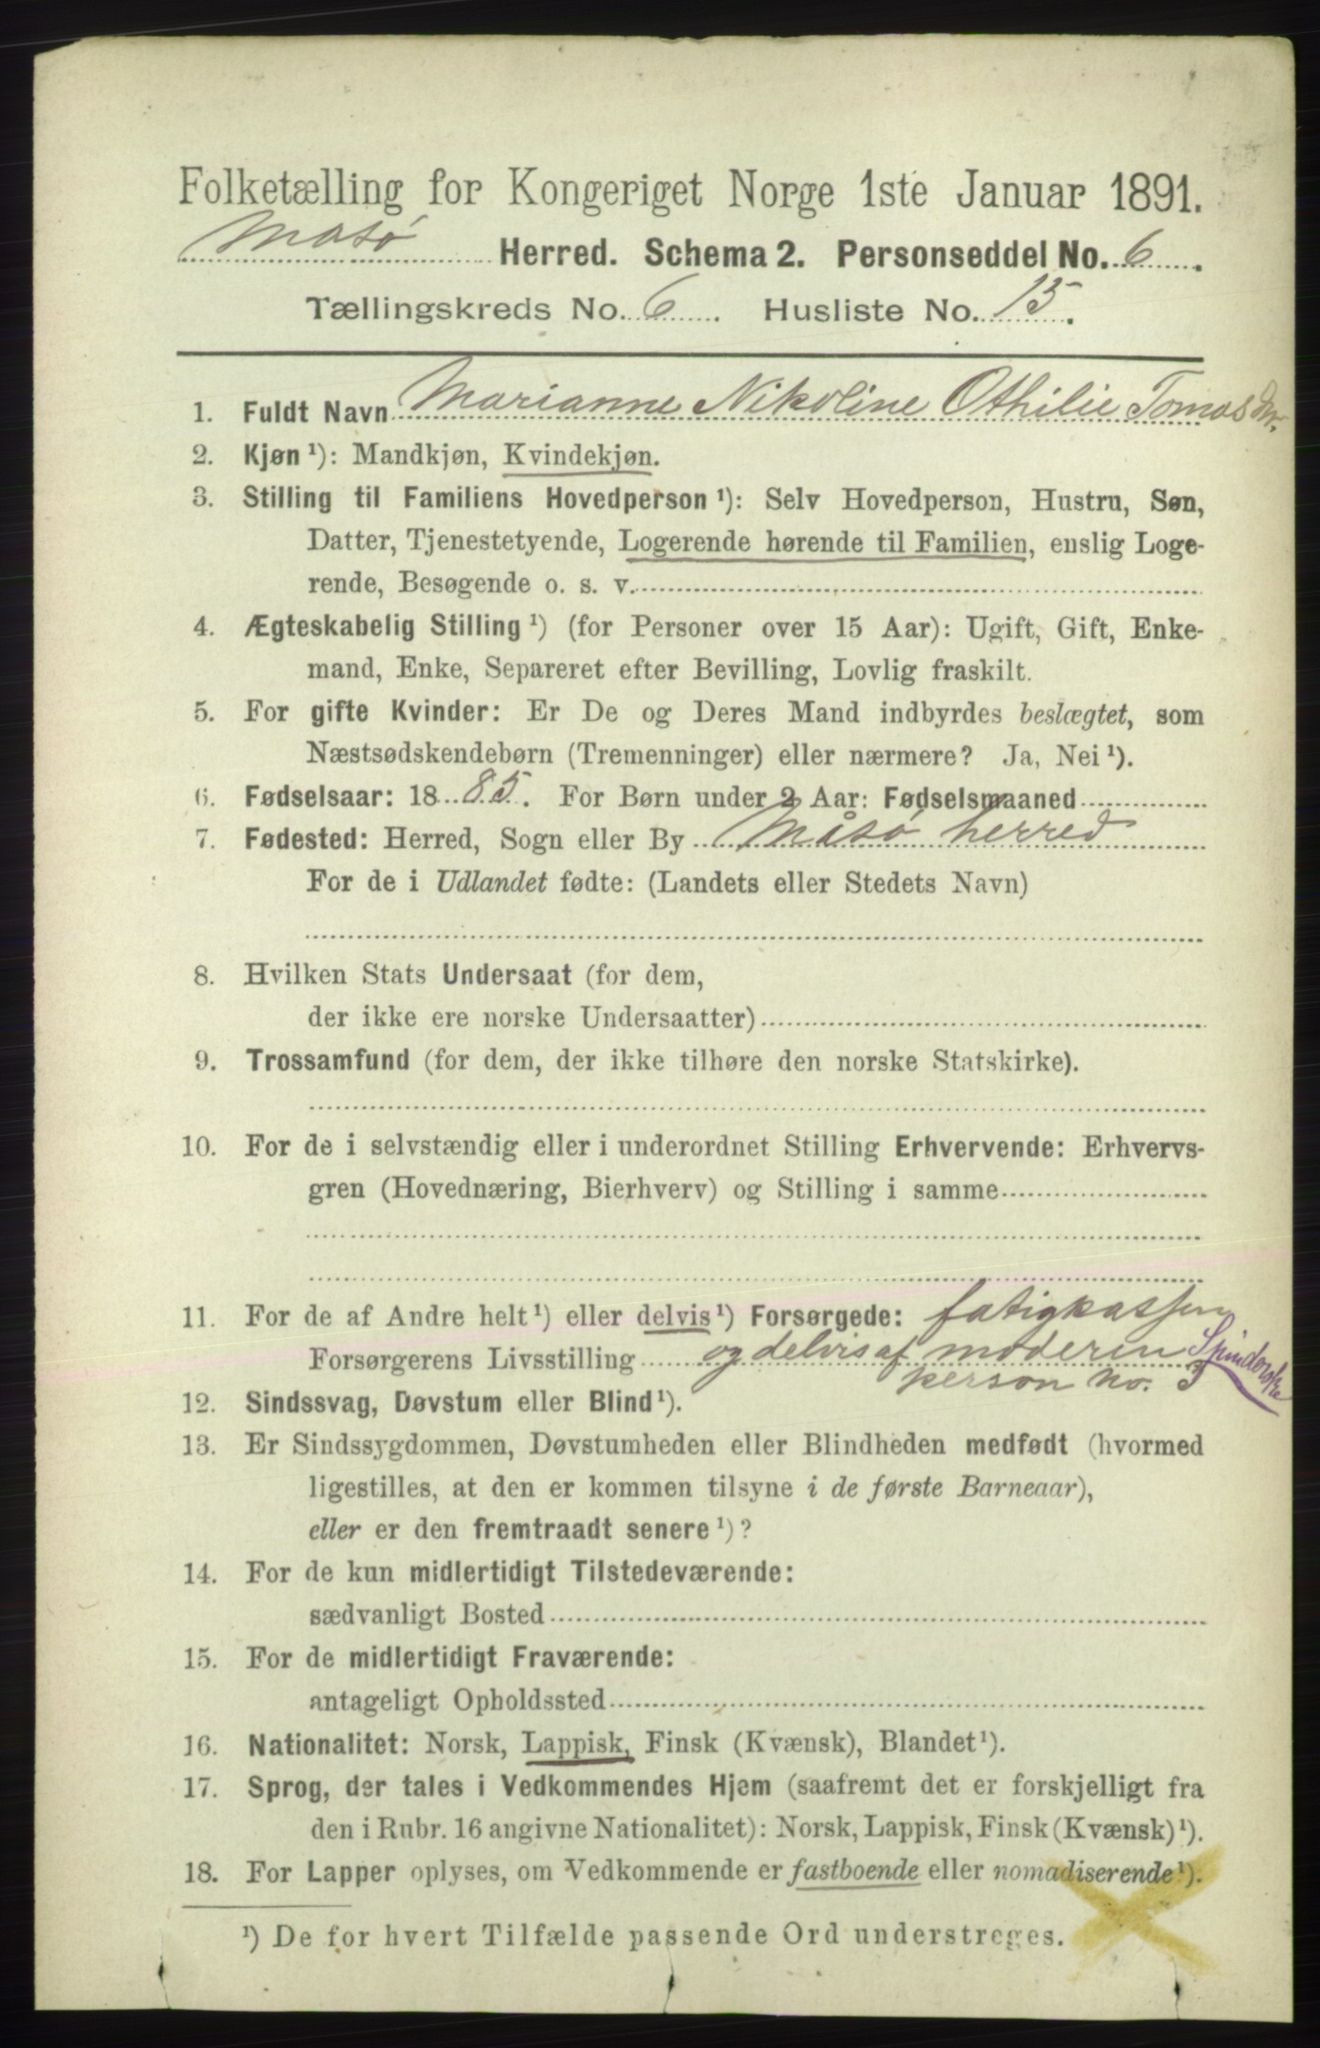 Folketælling for Kongeriget Norge 1ste Januar 1891.
Masø Herred. Schema 2. Personseddel No. 6
Tællingskreds No. 6. Husliste No. 15.
1. Fuldt Navn Marianne Nikoline Othilie Tomasdtr.
2. Kjøn ¹): Mandkjøn, Kvindekjøn.
3. Stilling til Familiens Hovedperson ¹): Selv Hovedperson, Hustru, Søn,
Datter, Tjenestetyende, Logerende hørende til Familien, enslig Loge-
rende, Besøgende o. s. v.
4. Ægteskabelig Stilling ¹) (for Personer over 15 Aar): Ugift, Gift, Enke-
mand, Enke, Separeret efter Bevilling, Lovlig fraskilt.
5. For gifte Kvinder: Er De og Deres Mand indbyrdes beslægtet, som
Næstsødskendebørn (Tremenninger) eller nærmere? Ja, Nei ¹).
6. Fødselsaar: 1885. For Børn under 2 Aar: Fødselsmaaned
7. Fødested: Herred, Sogn eller By Måsø herred
For de i Udlandet fødte: (Landets eller Stedets Navn)
8. Hvilken Stats Undersaat (for dem,
der ikke ere norske Undersaatter)
9. Trossamfund (for dem, der ikke tilhøre den norske Statskirke).
10. For de i selvstændig eller i underordnet Stilling Erhvervende: Erhvervs-
gren (Hovednæring, Bierhverv) og Stilling i samme
11. For de af Andre helt ¹) eller delvis ¹) Forsørgede: fatigkassen
Forsørgerens Livsstilling og delvis af moderen Spinderske
person no. 3
12. Sindssvag, Døvstum eller Blind ¹).
13. Er Sindssygdommen, Døvstumheden eller Blindheden medfødt (hvormed
ligestilles, at den er kommen tilsyne i de første Barneaar),
eller er den fremtraadt senere ¹)?
14. For de kun midlertidigt Tilstedeværende:
sædvanligt Bosted
15. For de midlertidigt Fraværende:
antageligt Opholdssted
16. Nationalitet: Norsk, Lappisk, Finsk (Kvænsk), Blandet ¹).
17. Sprog, der tales i Vedkommendes Hjem (saafremt det er forskjelligt fra
den i Rubr. 16 angivne Nationalitet): Norsk, Lappisk, Finsk (Kvænsk) ¹).
18. For Lapper oplyses, om Vedkommende er fastboende eller nomadiserende ¹).
¹) De for hvert Tilfælde passende Ord understreges.